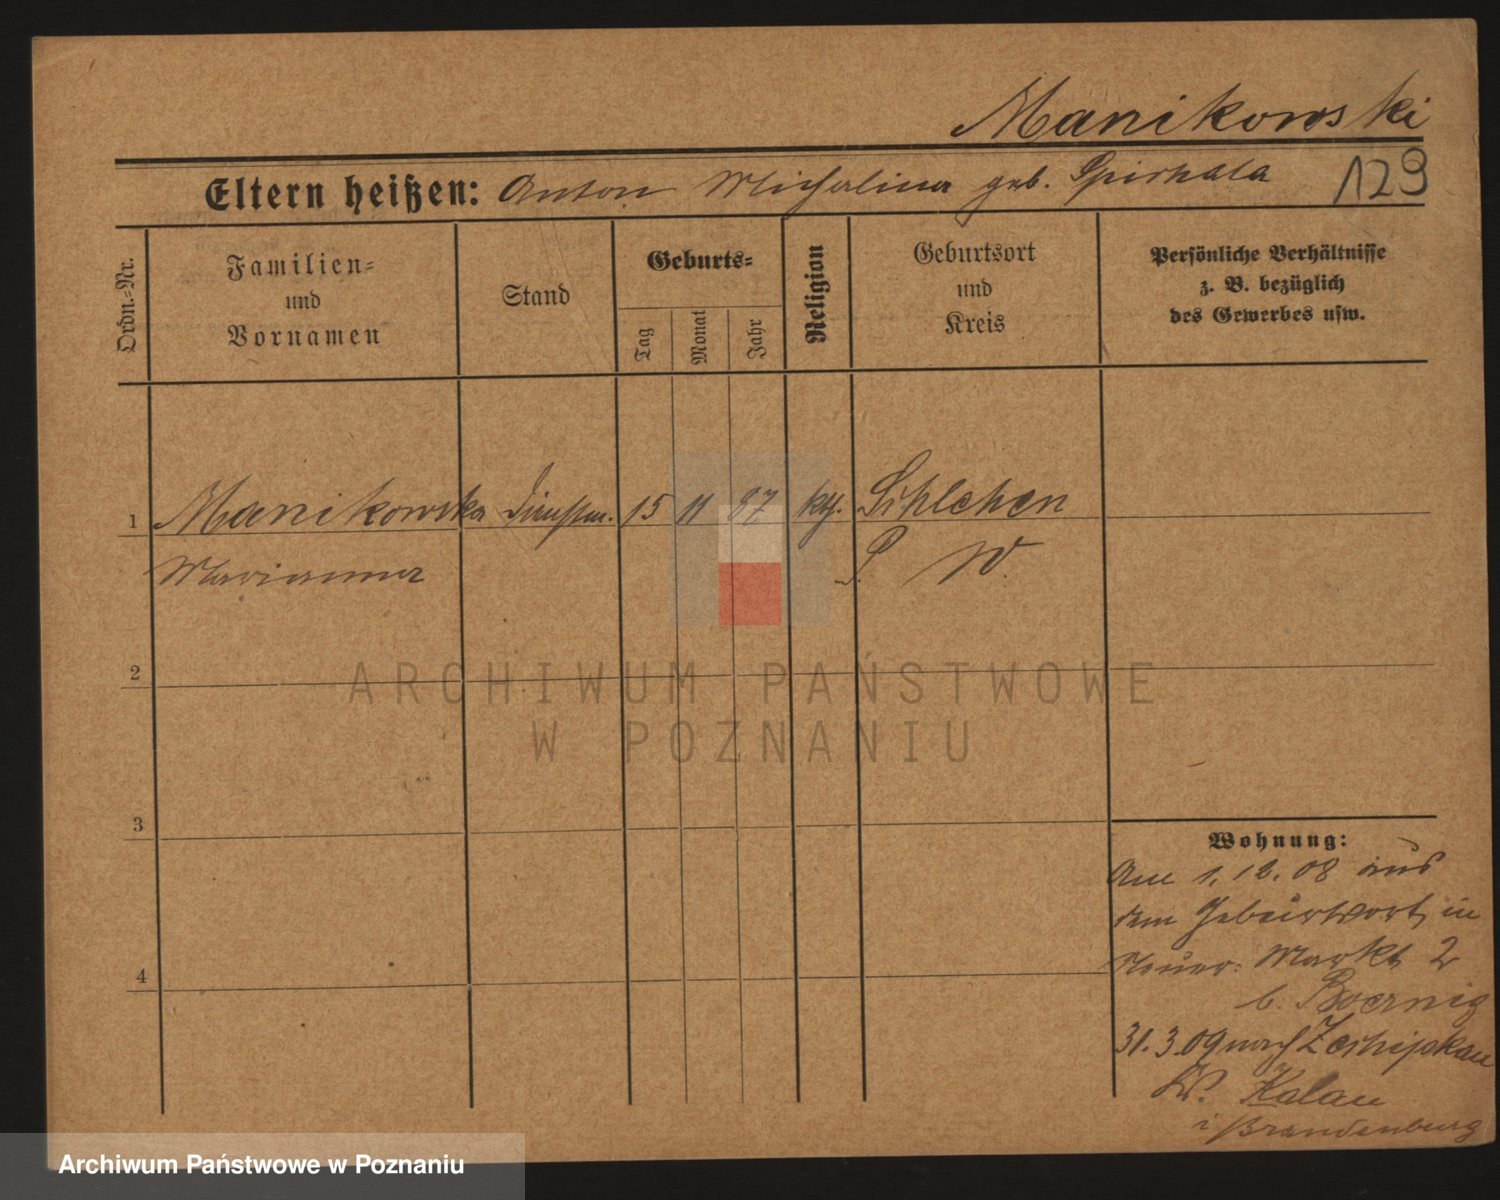 Manikowski
Eltern heißen: Anton Michalina geb. Spirkala
129
Ordn.-Nr.
Familien-
und
Vornamen
Stand
Geburts-
Tag
Monat
Jahr
Religion
Geburtsort
und
Kreis
Persönliche Verhältnisse
z. B. bezüglich
des Gewerbes usw.
1 Manikowska Dienstm. 15 11 87 kth.
Marianna
2
3
4
Wohnung:
Am 1.12.08 aus
dem Geburtsort in
Markt 2
b. Boernig
31.3.09 nach Zschipkau
Kr. Kalau
i/Brandenburg
ARCHIWUM PAŃSTWOWE
W POZNANIU
Archiwum Państwowe w Poznaniu